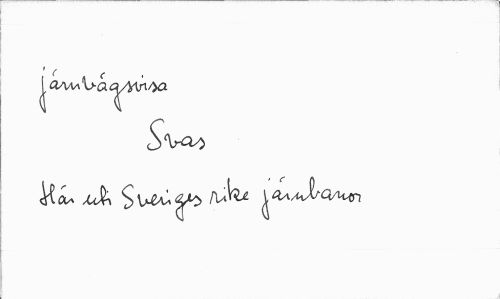 järnvägsvisa
Svas
Här uti Sveriges rike järnbanor